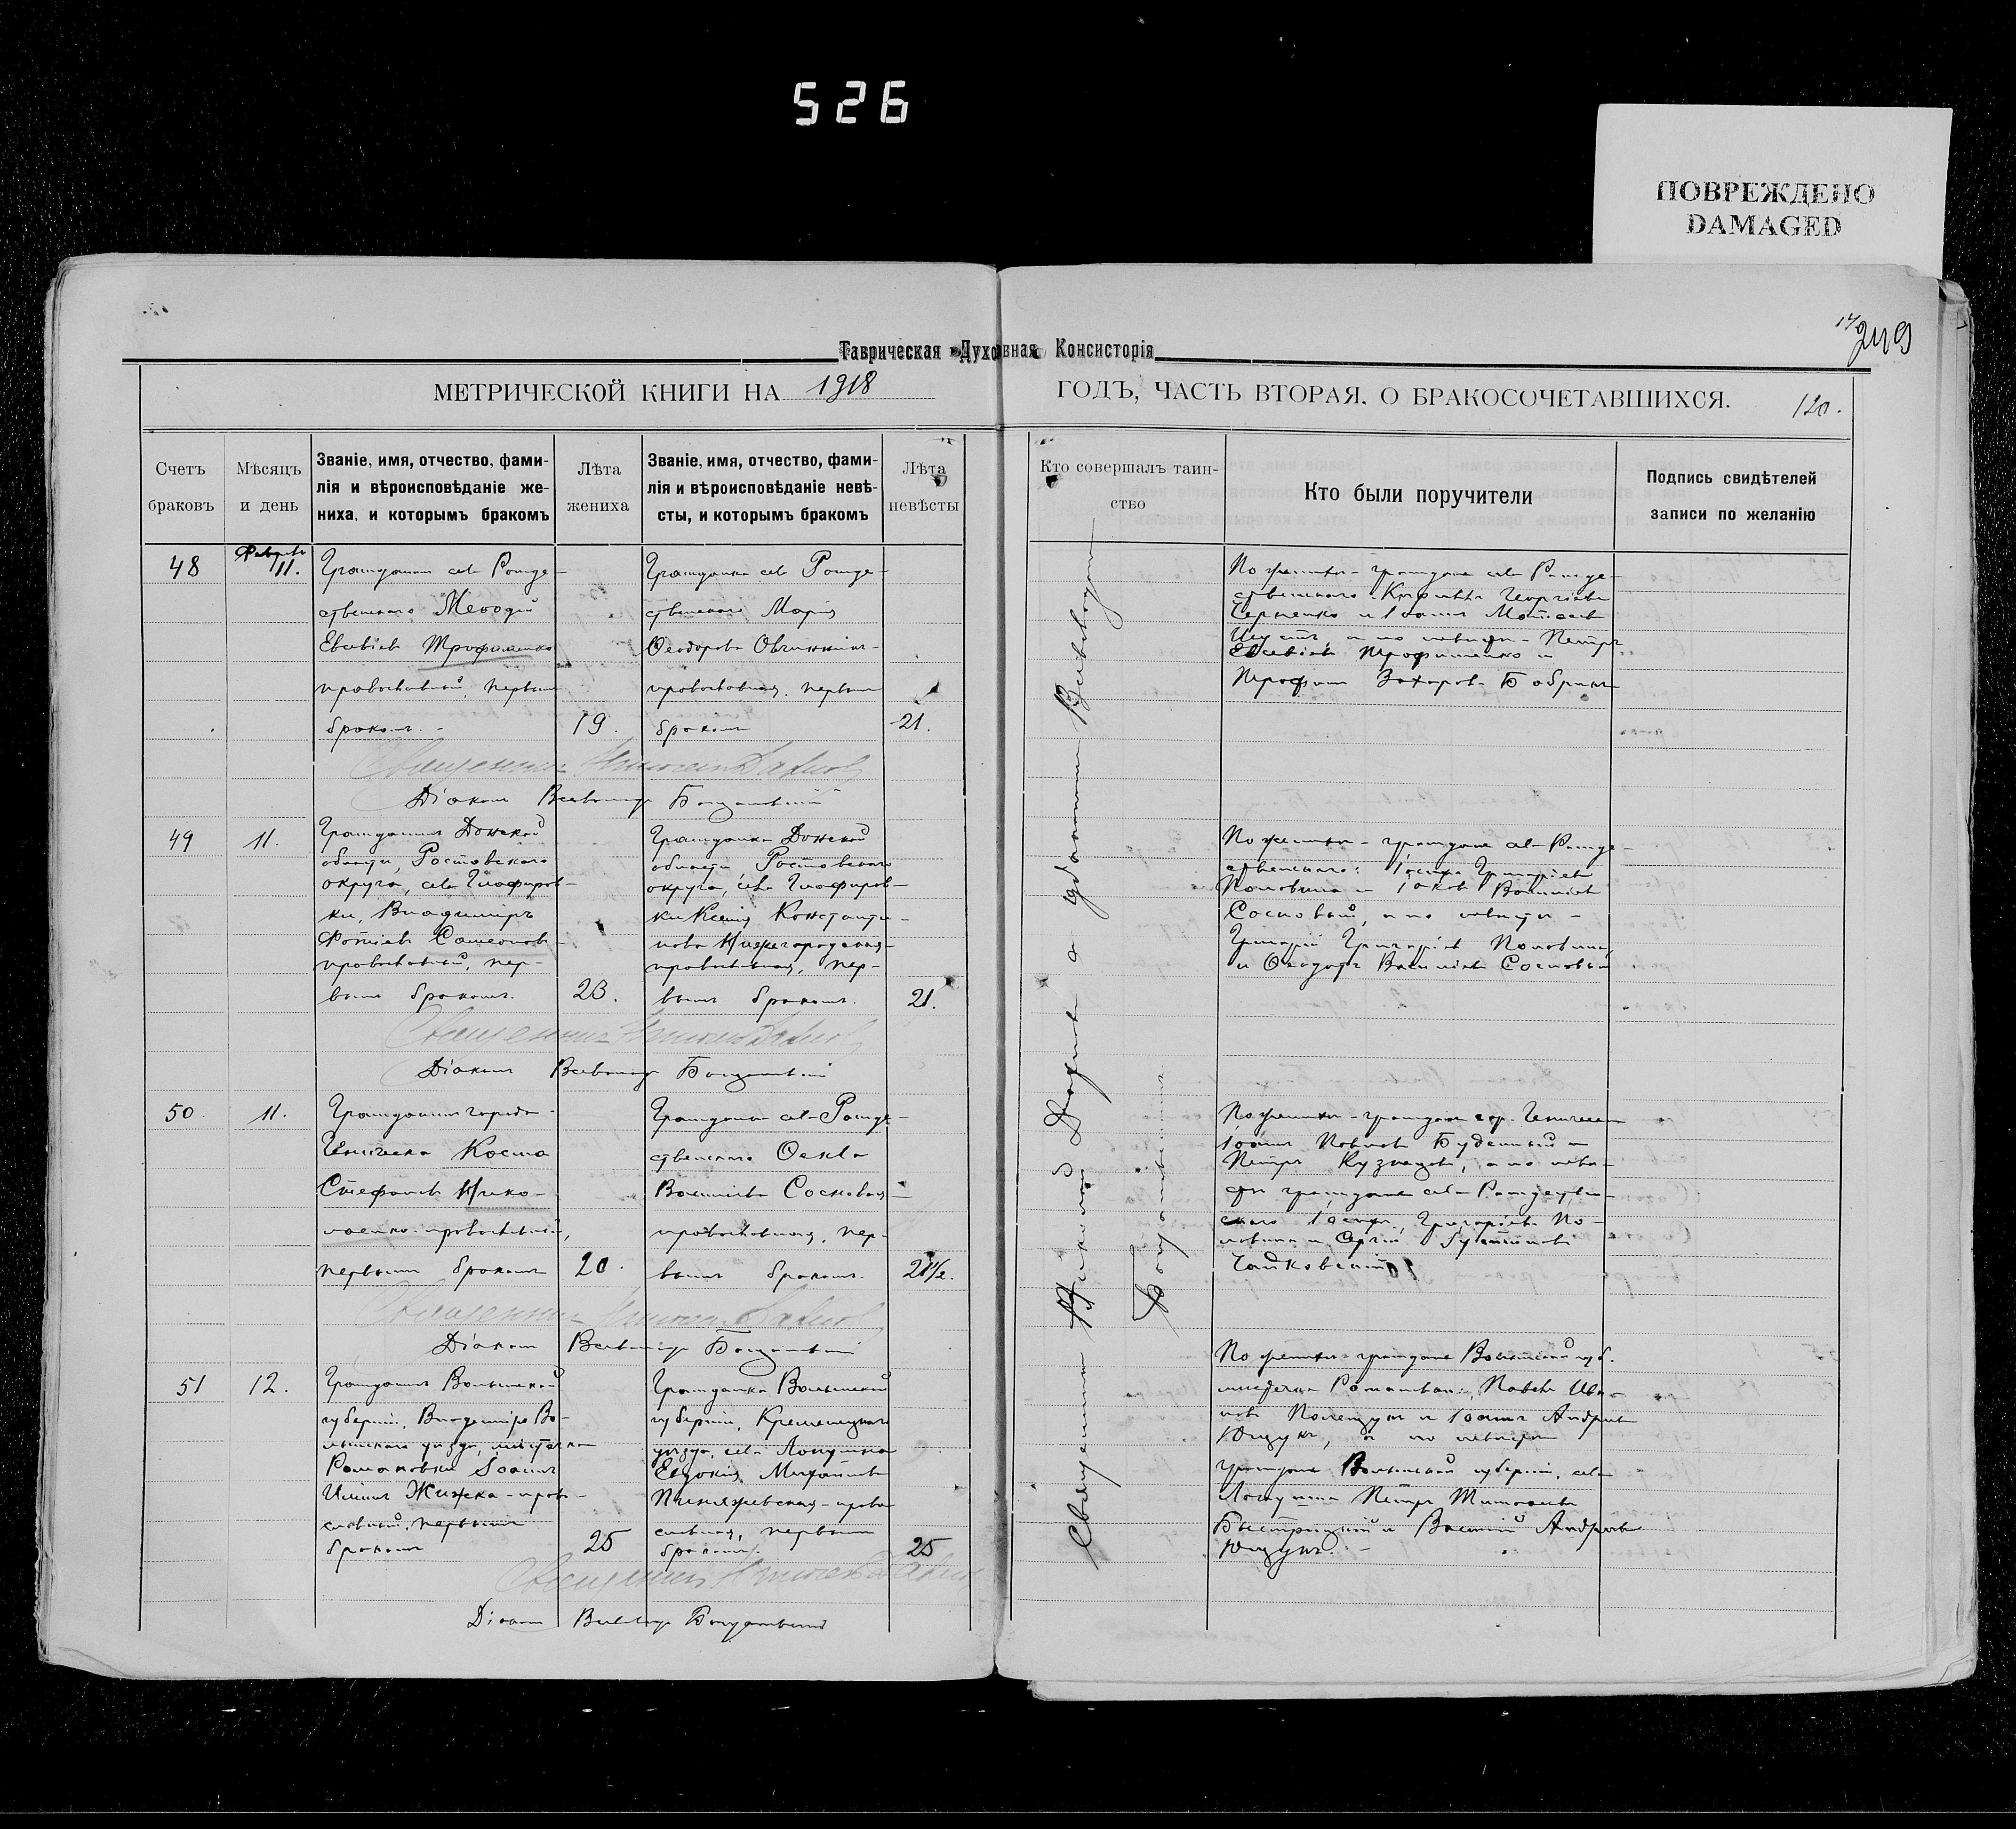 526
ПОВРЕЖДЕНО
DAMAGED
249
Таврическая Духовная Консисторія
МЕТРИЧЕСКОЙ КНИГИ НА 1918 ГОДЪ, ЧАСТЬ ВТОРАЯ, О БРАКОСОЧЕТАВШИХСЯ.
120.
Счетъ браковъ
Мѣсяцъ и день
Званіе, имя, отчество, фами-
лія и вѣроисповѣданіе же-
ниха, и которымъ бракомъ
Лѣта жениха
Званіе, имя, отчество, фами-
лія и вѣроисповѣданіе невѣ-
сты, и которымъ бракомъ
Лѣта невѣсты
Кто совершалъ таин-
ство
Кто были поручители
Подпись свидѣтелей
записи по желанію
48
11.
Гражданин села Рожде-
ственского Меѳодій
Евсевіев Трофименко
православный, первым
браком. -
19.
Гражданка села Рожде-
ственского Марія
Ѳеодорова Овчинник-
православная, первым
браком
21.
По женихе - граждане села Рожде-
ственского Кирилл Георгіев
Черненко и Іоанн Матвеев
а по невесте - Петр
Евсевіев Трофименко и
Трофим Захаров Бобрик
Священник Николай
Діакон Всеволод
49
11.
Гражданин Донской
области, Ростовского
округа, села Глафиров-
ки, Владимиръ
Фотіев Самсонов-
православный, пер-
вым браком.
23.
Гражданка Донской
области, Ростовского
округа, села Глафиров-
ки Ксенія Константи-
нова Нижегородская-
православная, пер-
вым браком.
21.
По женихе - граждане села Рожде-
ственского: Іосиф Григоріев
Половина и Іаков Васильев
Сосновый, а по невесте -
Григорій Григоріев Половина
и Ѳеодот Васильев Сосновый
Священник Николай
Діакон Всеволод
50.
11.
Гражданин города
Геническа Косма
Стефанов Нико-
лаенко православный,
первым браком
20.
Гражданка села Рожде-
ственского Ѳекла
Васильева Сосновая-
православная, пер-
вым браком.
21½.
По женихе - граждане гор. Геническа
Іоанн Павлов Буденный и
Петр Кузнецов, а по неве-
сте граждане села Рождествен-
ского Іосиф Григоріев По-
ловина и Сергій Іустинов
Чайковский
Священник Николай
Діакон Всеволод
51
12.
Гражданин Волынской
губерніи, Владиміро Во-
лынского уезда, местечка
Романовки Іоанн
Ильин Жижка - право-
славный, первым
браком
25
Гражданка Волынской
губерніи, Кременецкого
уезда, села Лопушна
Евдокія Михайлова
православная, первым
браком.
25
По женихе - граждане Волынской губ.
местечка Романовки: Павел Ива-
нов Полещук и Іоанн Андреев
Ющук, а по невесте
граждане Волынской губерніи, села
Лопушна Петр Тимофеев
Быстрицкий и Василий Андреев
Ющук. -
Священник Николай
Діакон Всеволод
Священник Николай
и діакон Всеволод